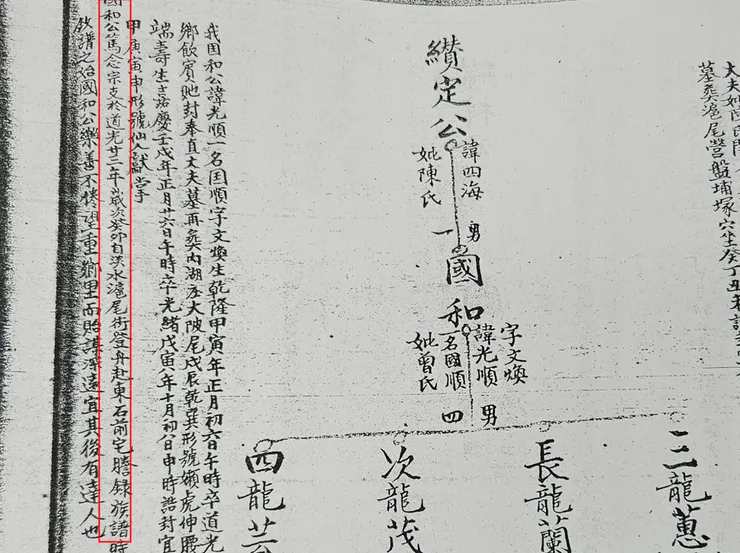 大夫妣陳氏
墓葬滬尾營盤埔塚穴坐癸丁丑
纉定公
諱四海
妣陳氏
男
一
國和
字文煥
諱光順
一名國順
妣曾氏
男
四
三龍蕙
長龍蘭
次龍茂
四龍芸
我國和公諱光順一名国順字文煥生乾隆甲寅年正月初六日午時卒道光
鄉飲賓貤封奉直大夫墓再葬内湖庄大陂尾戍辰乾巽形號嫺虎伸腰
端壽生嘉慶壬戌年正月廿六日午時卒光緒戊寅八年十月初八日申時誥封宜
甲庚寅申形號仙人獻掌
國和公篤念宗支於道光廿三年歲次癸卯自淡水滬尾街登舟赴東石前宅謄錄族譜時
敘譜之始國和公樂善不倦望重鄉里而貽謀深遠宜其後有達人也